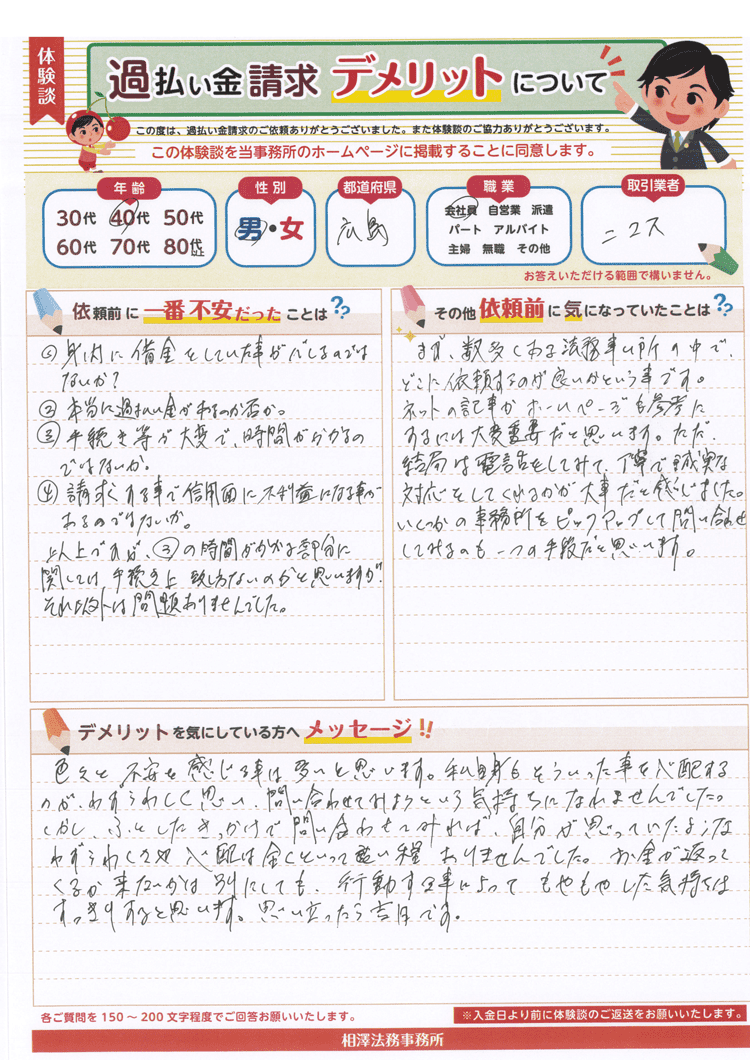 体験談
過払い金請求 デメリットについて
この度は、過払い金請求のご依頼ありがとうございました。また体験談のご協力ありがとうございます。
この体験談を当事務所のホームページに掲載することに同意します。
年齢
30代 40代 50代
60代 70代 80代以上
性別
男・女
都道府県
広島
職業
会社員 自営業 派遣
パート アルバイト
主婦 無職 その他
取引業者
ニコス
お答えいただける範囲で構いません。
依頼前に一番不安だったことは??
① 身内に借金をしていた事がバレるのでは
ないか?
② 本当に過払い金があるのか否か。
③ 手続き等が大変で、時間がかかるの
ではないか。
④ 請求する事で信用面に不利益になる事が
あるのではないか。
以上ですが、③の時間がかかる部分に
関しては手続き上致し方ないのかと思いますが、
それ以外は問題ありませんでした。
その他依頼前に気になっていたことは??
まず、数多くある法務事務所の中で、
どこに依頼するのが良いかという事です。
ネットの記事やホームページも参考に
するには大変重要だと思います。ただ、
結局は電話をしてみて、丁寧で誠実な
対応をしてくれるかが大事だと感じました。
いくつかの事務所をピックアップして問い合わせ
してみるのも一つの手段だと思います。
デメリットを気にしている方へメッセージ!!
色々と不安を感じる事は多いと思います。私自身もそういった事を心配する
のが、わずらわしく思い、問い合わせてみようという気持ちになれませんでした。
しかし、ふとしたきっかけで問い合わせてみれば、自分が思っていたような
わずらわしさや心配は全くといって無い程ありませんでした。お金が返って
くるか来ないかは別にしても、行動する事によってもやもやした気持ちは
すっきりすると思います。思い立ったら吉日です。
各ご質問を150~200文字程度でご回答お願いいたします。
※入金日より前に体験談のご返送をお願いいたします。
相澤法務事務所